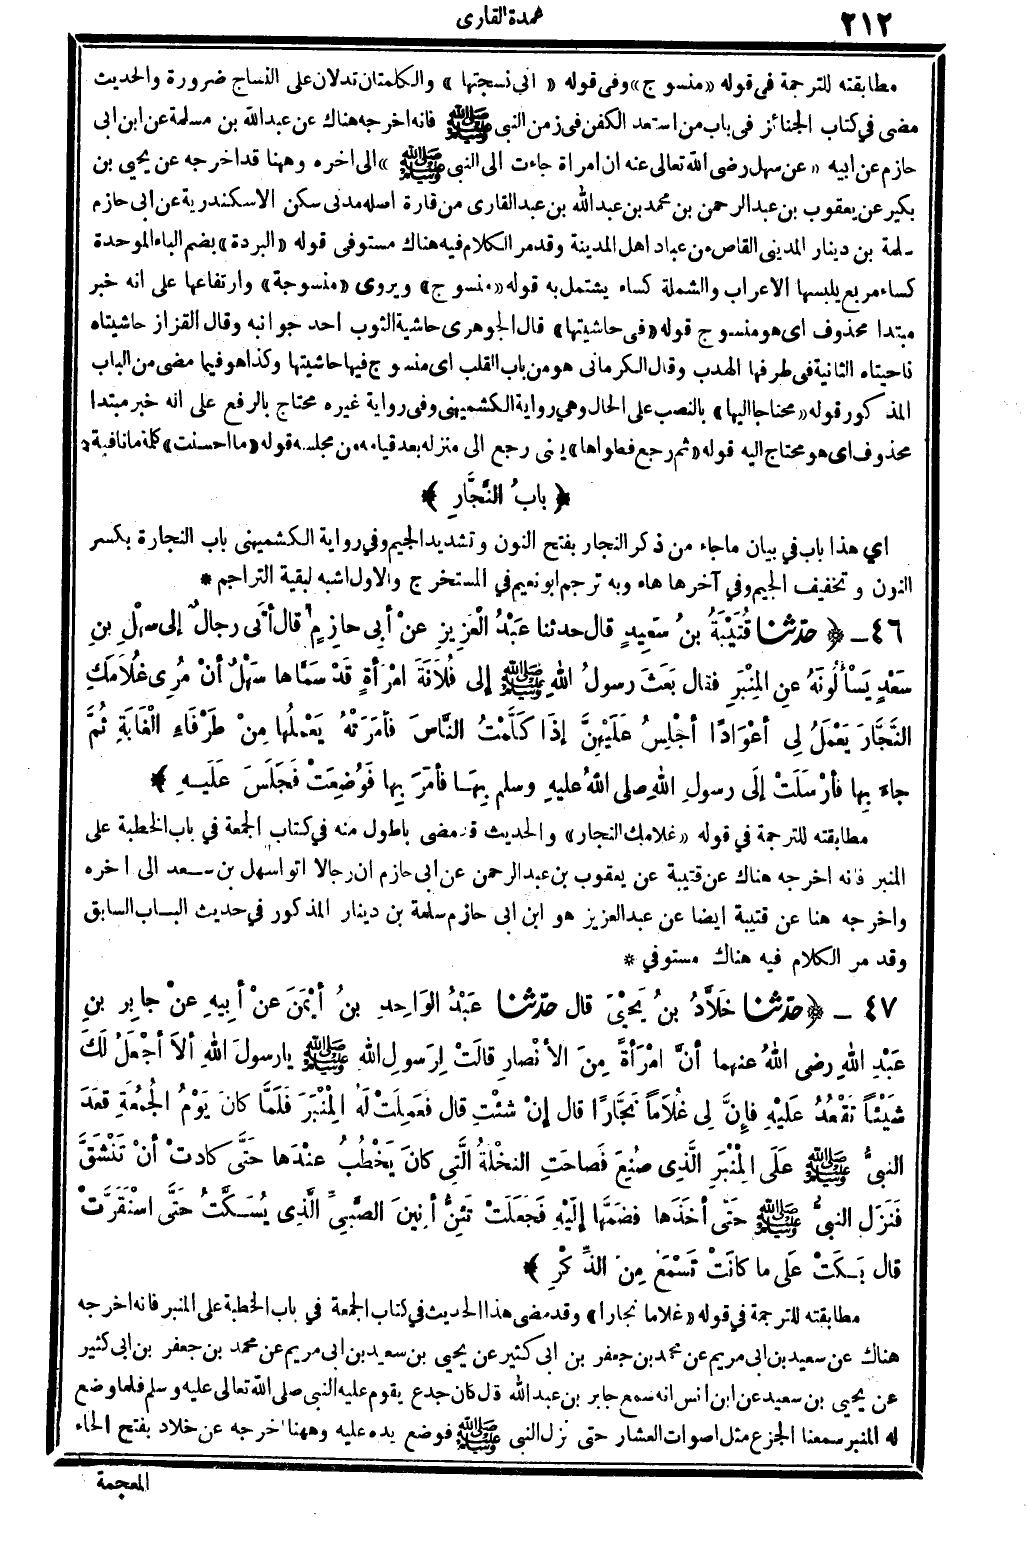 ٢١٢
عمدة القارى
مطابقته للترجمة فى قوله «منسوج» وفى قوله «انى نسجتها» والكلمتان تدلان على النساج ضرورة والحديث
مضى فى كتاب الجنائز فى باب من استعد الكفن فى زمن النبى ﷺ فانه اخرجه هناك عن عبدالله بن مسلمة عن ابن ابى
حازم عن ابيه «عن سهل رضى الله تعالى عنه ان امراة جاءت الى النبى ﷺ» الى اخره وههنا قد اخرجه عن يحيى بن
بكير عن يعقوب بن عبد الرحمن بن محمد بن عبد الله بن عبد القارى من قارة اصله مدنى سكن الاسكندرية عن ابى حازم
سلمة بن دينار المدينى القاص من عباد اهل المدينة وقد مر الكلام فيه هناك مستوفى قوله «البردة» بضم الباء الموحدة
كساء مربع يلبسها الاعراب والشملة كساء يشتمل به قوله «منسوج» ويروى «منسوجة» وارتفاعها على انه خبر
مبتدا محذوف اى هو منسوج قوله «فى حاشيتها» قال الجوهرى حاشية الثوب احد جوانبه وقال القزاز حاشيتاه
ناحيتاه الثانية فى طرفها الهدب وقال الكرمانى هو من باب القلب اى منسوج فيها حاشيتها وكذا هو فيما مضى من الباب
المذكور قوله «محتاجا اليها» بالنصب على الحال وهى رواية الكشميهنى وفى رواية غيره محتاج بالرفع على انه خبر مبتدا
محذوف اى هو محتاج اليه قوله «ثم رجع فطواها» يعنى رجع الى منزله بعد قيامه من مجلسه قوله «ما احسنت» كلمة ما نافية
﴿ بابُ النَّجَّارِ ﴾
اي هذا باب في بيان ما جاء من ذكر النجار بفتح النون وتشديد الجيم وفي رواية الكشميهنى باب النجارة بكسر
النون وتخفيف الجيم وفي آخرها هاء وبه ترجم ابو نعيم في المستخرج والاول اشبه لبقية التراجم *
٤٦ـ ﴿ حدثنا قُتَيْبَةُ بنُ سَعِيدٍ قال حدثنا عَبْدُ الْعَزِيزِ عنْ أبِى حازِمٍ قال أتَى رجالٌ إلى سهْلِ بنِ
سَعْدٍ يَسْألُونَهُ عنِ المِنْبَرِ فقال بَعَثَ رسولُ اللهِ ﷺ إلى فُلاَنَةَ امْرأةٍ قَدْ سَمَّاها سَهْلٌ أنْ مُرِى غُلاَمَكِ
النَّجَّارَ يَعْمَلُ لِى أعْوَادًا أجْلِسُ عَلَيْهِنَّ إذَا كَلَّمْتُ النَّاسَ فأمَرَتْهُ يَعْمَلُها مِنْ طَرْفَاءِ الْغَابَةِ ثُمَّ
جاءَ بِها فأرْسَلَتْ إلَى رسولِ اللهِ صلى اللهُ عليهِ وسلم بِهَا فأمَرَ بِها فَوُضِعَتْ فَجَلَسَ عَلَيهِ ﴾
مطابقته للترجمة في قوله «غلامك النجار» والحديث قد مضى باطول منه في كتاب الجمعة في باب الخطبة على
المنبر فانه اخرجه هناك عن قتيبة عن يعقوب بن عبد الرحمن عن ابى حازم ان رجالا اتوا سهل بن سعد الى اخره
واخرجه هنا عن قتيبة ايضا عن عبد العزيز هو ابن ابى حازم سلمة بن دينار المذكور في حديث الباب السابق
وقد مر الكلام فيه هناك مستوفي *
٤٧ ـ ﴿ حدثنا خَلاَّدُ بنُ يَحْيَى قال حدثنا عَبْدُ الوَاحِدِ بنُ أيْمَنَ عنْ أبِيهِ عنْ جابِرِ بنِ
عَبْدِ اللهِ رضى اللهُ عنهما أنَّ امْرَأةً مِنَ الأنْصارِ قالَتْ لِرَسولِ اللهِ ﷺ يارسولَ اللهِ ألاَ أجْعَلُ لَكَ
شَيْئاً تَقْعُدُ عَلَيْهِ فإنَّ لِى غُلاَماً نَجَّارًا قال إنْ شئْتِ قال فعَمِلَتْ لهُ المِنْبَرَ فَلَمَّا كانَ يَوْمُ الجُمُعَةِ قعَدَ
النبىُّ ﷺ علَى المِنْبَرِ الَّذِى صُنِعَ فَصاحَتِ النخْلةُ الَّتِى كانَ يَخْطُبُ عنْدَها حتَّى كادتْ أنْ تَنْشَقَّ
فنَزَلَ النبىُّ ﷺ حتَّى أخَذَها فضَمَّها إلَيْهِ فَجَعَلَتْ تَئِنُّ أنِينَ الصَّبِىِّ الَّذِى يُسَكَّتُ حتَّى اسْتَقَرَّتْ
قال بَكَتْ عَلَى ما كانَتْ تَسْمَعُ مِنَ الذِّكْرِ ﴾
مطابقته للترجمة في قوله «غلاما نجارا» وقد مضى هذا الحديث في كتاب الجمعة في باب الخطبة على المنبر فانه اخرجه
هناك عن سعيد بن ابى مريم عن محمد بن جعفر بن ابى كثير عن يحيى بن سعيد بن ابى مريم عن محمد بن جعفر بن ابى كثير
عن يحيى بن سعيد عن ابن انس انه سمع جابر بن عبد الله قال كان جذع يقوم عليه النبى صلى الله تعالى عليه وسلم فلما وضع
له المنبر سمعنا الجزع مثل اصوات العشار حتى نزل النبى ﷺ فوضع يده عليه وههنا اخرجه عن خلاد بفتح الخاء
المعجمة